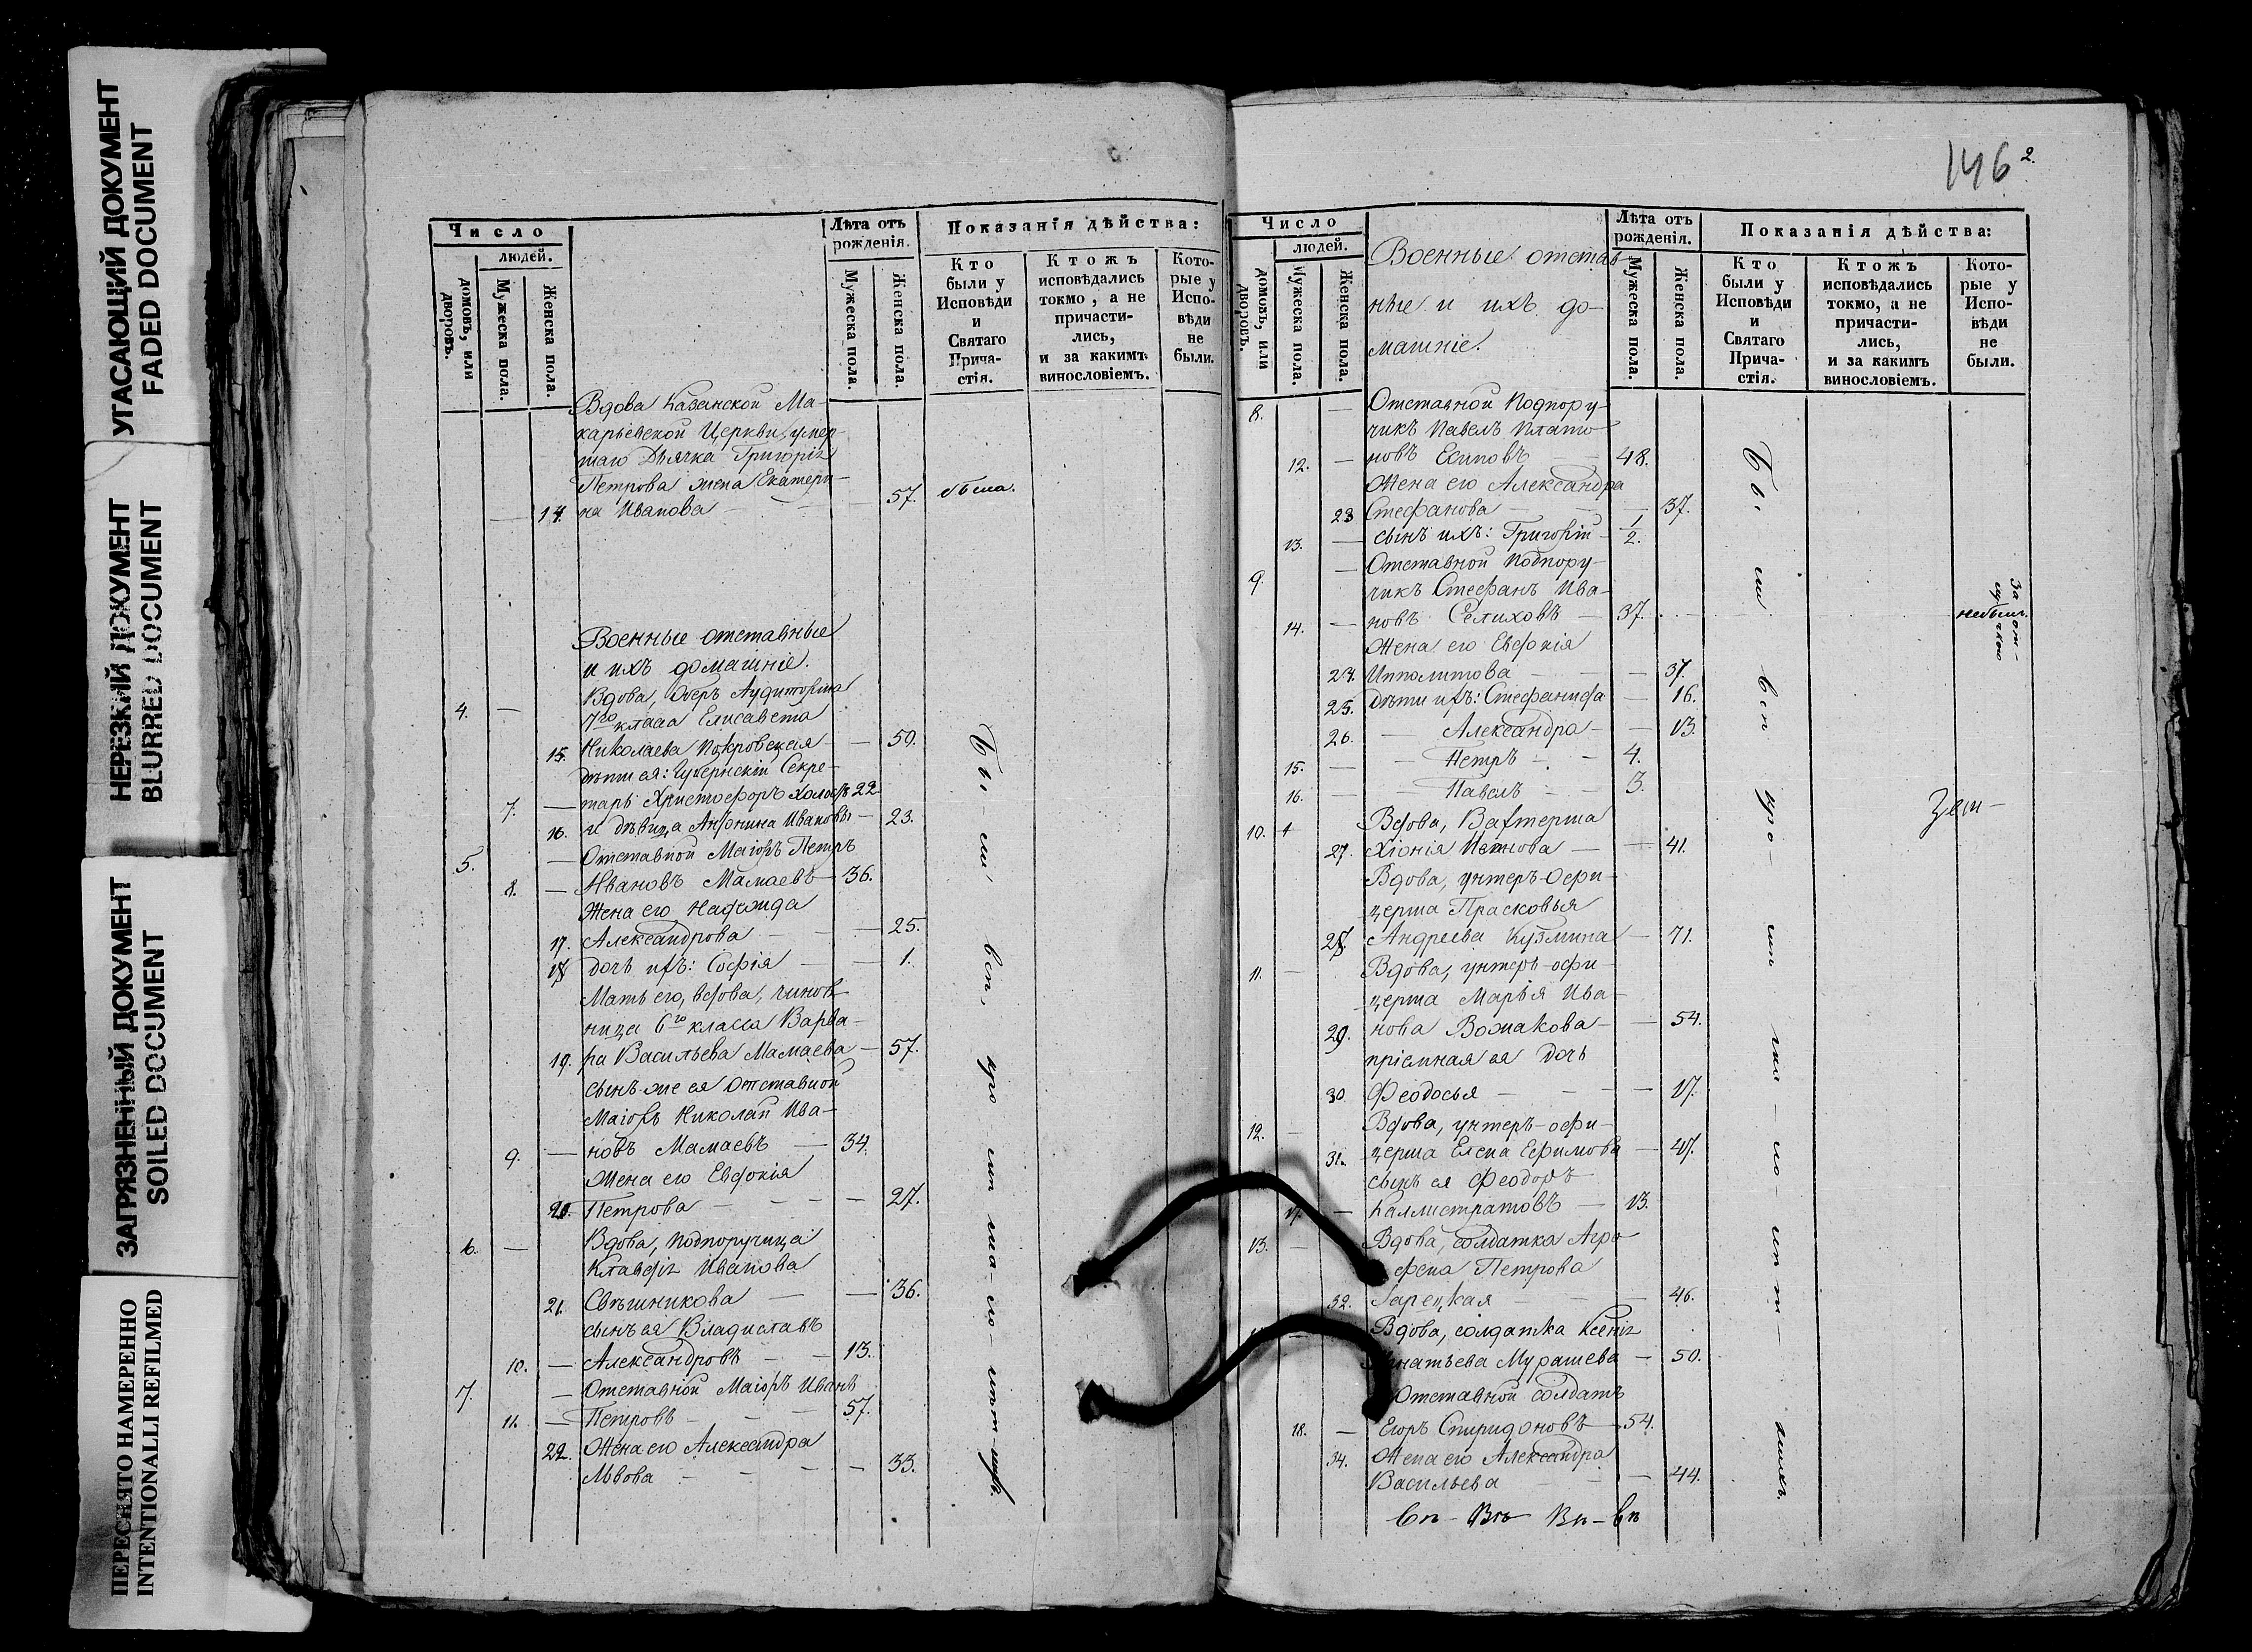 УГАСАЮЩИЙ ДОКУМЕНТ
FADED DOCUMENT
НЕРЕЗКИЙ ДОКУМЕНТ
BLURRED DOCUMENT
ЗАГРЯЗНЕННЫЙ ДОКУМЕНТ
SOILED DOCUMENT
ПЕРЕСНЯТО НАМЕРЕННО
INTENTIONALLI REFILMED
Число
людей.
домовъ, или дворовъ.
Мужеска пола.
Женска пола.
Лѣта отъ рожденія.
Мужеска пола.
Женска пола.
Показанія дѣйства:
Кто были у Исповѣди и Святаго Прича-стія.
Ктожъ исповѣдались токмо, а не причасти-лись, и за какимъ винословіемъ.
Кото-рые у Испо-вѣди не были.
Вдова Казанской Ма-
карьевской Церкви умер-
шаго Дьячка Григорія
Петрова жена Екатери-
14. на Иванова 57. была.
Военные отставные
и ихъ домашніе.
4. Вдова, Оберъ Аудиторша
7го класса Елисавета
15. Николаева Покровская 50.
дѣти ея: Губернскій Секре-
7. тарь Христофоръ холостъ 22.
16. и дѣвица Антонина Ивановы 23.
5. Отставной Маіоръ Петръ
8. Ивановъ Мамаевъ 36.
Жена его Надежда
17. Александрова 25.
18. дочь ихъ: Софія 1.
Мать его, вдова, чинов-
ница 6го класса Варва-
19. ра Васильева Мамаева 57.
сынъ же ея Отставной
Маіоръ Николай Ива-
9. новъ Мамаевъ 34.
Жена его Евдокія
20. Петрова 27.
6. Вдова, Подпоручица
Клавдія Иванова
21. Свѣшникова 36.
сынъ ея Владиславъ
10. Александровъ 13.
7. Отставной Маіоръ Иванъ
11. Петровъ 57.
22. Жена его Александра
Львова 33.
Бы-ли всѣ
146 2.
Число
людей.
домовъ, или дворовъ.
Мужеска пола.
Женска пола.
Военные отстав
ные и ихъ до-
машніе.
Лѣта отъ рожденія.
Мужеска пола.
Женска пола.
Показанія дѣйства:
Кто были у Исповѣди и Святаго Прича-стія.
Ктожъ исповѣдались токмо, а не причасти-лись, и за какимъ винословіемъ.
Кото-рые у Испо-вѣди не были.
8. Отставной Подпору-
чикъ Павелъ Плато-
12. новъ Есиповъ 48.
Жена его Александра
23 Стефанова 37.
13. сынъ ихъ: Григорій 1/2.
9. Отставной Подпору-
чикъ Стефанъ Ива-
14. новъ Селиховъ 37. небылъ. За от-лучкою
Жена его Евдокія
24. Ипполитова 37.
25. Дѣти ихъ: Стефанида 16.
26. Александра 13.
15. Петръ 4.
16. Павелъ 3.
10. Вдова, Вахтерша
27. Хіонія 41.
Вдова, унтеръ-Офи-
церша Прасковья
28. Андреева Кузмина 71.
11. Вдова, унтеръ-офи-
церша Марья Ива-
29. нова Вожакова 54.
пріемная ея дочь
30 Феодосья 17.
12. Вдова, унтеръ-офи-
31. церша Елена Ефимова 47.
сынъ ея Феодоръ
17. Каллистратовъ 13.
13. Вдова, солдатка Агра
фена Петрова
32. Зарецкая 46.
Вдова, солдатка Ксенія
Игнатьева Мурашева 50.
Отставной солдатъ
18. Егоръ Спиридоновъ 54.
34. Жена его Александра
Васильева 44.
Бы-ли всѣ